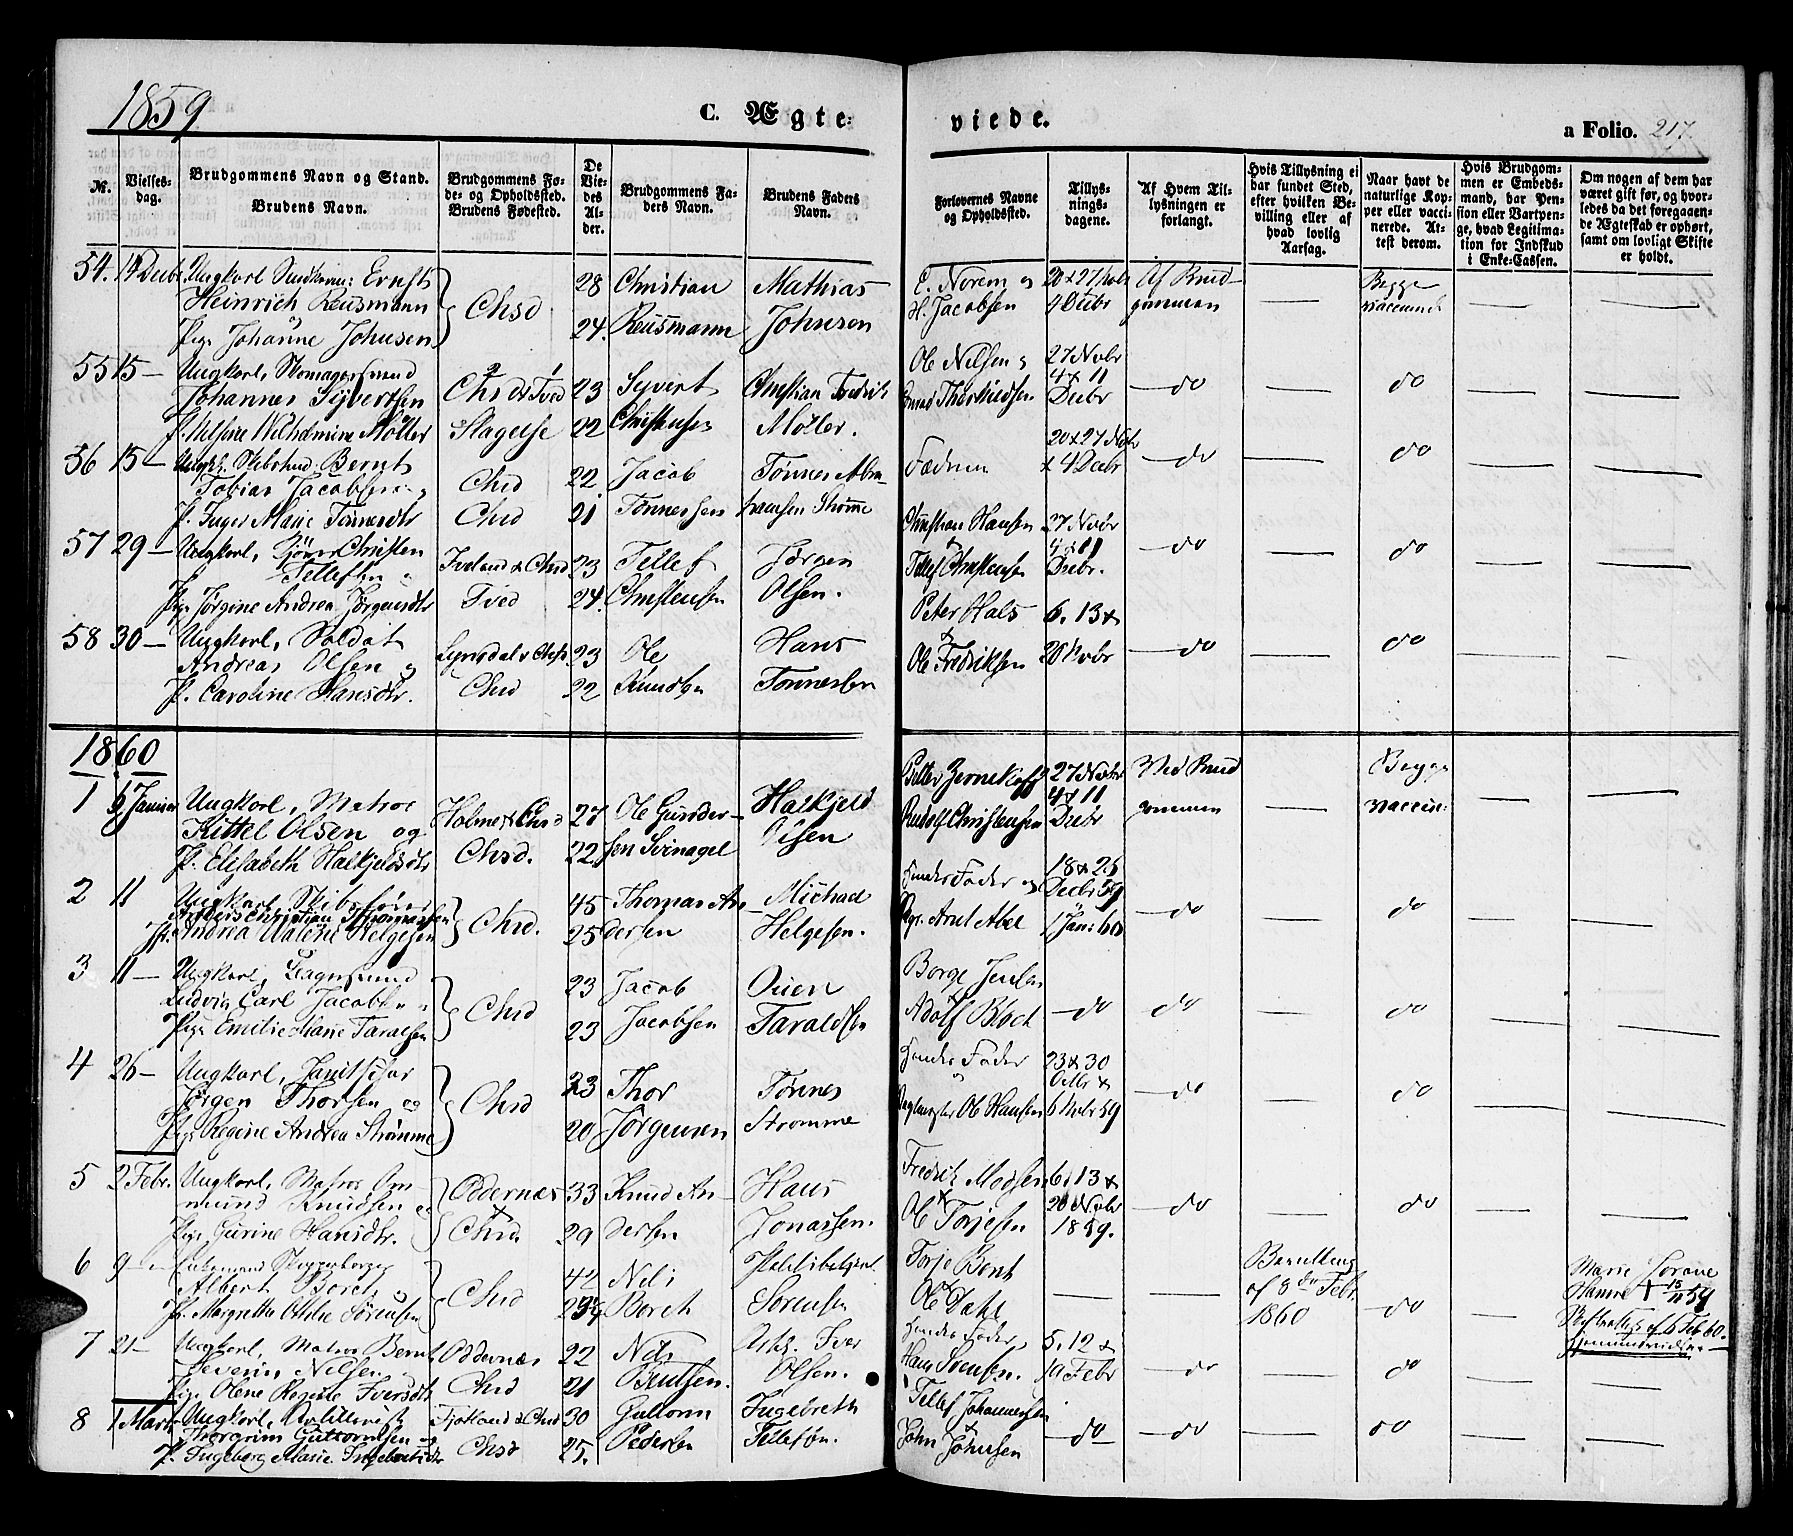 1859
C. Ægte-
viede.
a Folio. 217
No.
Vielses-
dag.
Brudgommens Navn og Stand.
Brudens Navn.
Brudgommens Fø-
de- og Opholdssted.
Brudens Fødested.
De
Vie-
des
Al-
der.
Brudgommens Fa-
ders Navn.
Brudens Faders
Navn.
Forlovernes Navne
og Opholdssted.
Tillys-
nings-
dagene.
Af Hvem Til-
lysningen er
forlangt.
Hvis Tillysning ei
har fundet Sted,
efter hvilken Be-
villing eller af
hvad lovlig
Aarsag.
Naar havt de
naturlige Kop-
per eller vacci-
nerede. At-
test derom.
Hvis Brudgom-
men er Embeds-
mand, har Pen-
sion eller Vartpen-
ge, hvad Legitima-
tion for Indskud
i Enke-Cassen.
Om nogen af dem har
været gift før, og hvor-
ledes da det foregaaen-
de Ægteskab er ophørt,
samt om lovligt Skifte
er holdt.
54. 14 Decbr. Ungkarl Ernst 28 Christian Mathias C. Norem og 20 & 27 Nobr Af Brud- Begge
Heinrich Reusmann Chsd H. Jacobsen 4 Decbr gommen vaccinerede
Pige Johanne Johnsen 24. Reusmann Johnsen
55 15 — Ungkarl, Skomagersvend Ole Nilsen og 27 Novbr
Johannes Syvertsen Chsd & Tved 23 Syvert Christian Fredrik Thorkildsen 4 & 11 Decbr — do — do
P. Nilsine Wilhelmine Møller Slagelse 22 Christensen Møller.
56 15 — Ungk. Bernt 20 & 27 Nobr
Tobias Jacobsen og Chsd 22 Jacob Tønnes Abra- Fædrene & 4 Decbr — do — do
P. Inger Marie Tønnesdtr Chsd 21 Tønnessen hamsen Strømme
57 29 — Ungkarl, Christen Christian Hansen 27 Novbr
Tellefsen og Iveland & Chsd 23 Tellef Jørgen & Tellef Christensen 4 & 11 Decbr. — do — do
Pige Jørgine Andrea Jørgensdtr Tved 24. Christensen Olsen.
58 30 — Ungkarl, Soldat Peter Hals 6. 13 &
Andreas Olsen og Lyngdal & Chsd 23 Ole Hans & Ole Fredriksen 20 Novbr — do — do
P. Caroline Hansdtr. Chsd 22 Knudsen Tønnesen
1860
1 5 Januar Ungkarl, Matros 27 Novbr Ved Brud- Begge
Kittel Olsen og Holme & Chsd 27 Ole Gunder- Halkjeld Rudolf Christensen 4 & 11 Decbr gommen vaccin:
P. Elisabeth Halkjeldsdtr Chsd. 22 sen Svinagel Olsen
2 11 Ungkarl, Skibsfører 45 Thomas An- Michael Hendes Fader og 18 & 25 Decbr 59
Anders Christian Thomassen Chsd. Arnt Abel 1 Jan: 60 — do — do
Andrea Valene Helgesen 25 dersen Helgesen.
3 11 — Ungkarl, 23 Jacob Ouen Børge Jensen
Ludvig Carl Jacobsen og Chsd & Adolf Bloch — do — do do
Pige Emilie Marie Taralsen 23 Jacobsen Taraldsen
4 26 — Ungkarl, Janitschar 23 Thor Tønnes Hendes Fader 23 & 30
Jørgen Thorsen og Chsd og Ole Hansen Octbr & 6 Nobr 59 — do — do
Pige Regine Andrea Strømme 20 Jørgensen Strømme
5 2 Febr. Ungkarl, Matros Om- Oddernæs 33 Knud An- Hans Fredrik Madsen 6. 13 &
mund Knudsen og & & Ole Torjesen 20 Novbr 1859. — do — do
Pige Gurine Hansdtr. Chsd. 29 dersen Jonassen.
6 9 — Enkemand 42 Nels Torje Bent Bevilling Marie
Albert Boreth og Chsd & Ole Dahl — — af 8de Febr. 1860 do Hamre † 15/11 59
P. Margrethe Othilie Sørensen Boreth Sørensen Skifteattest af 6 Feb 60.
7 21 — Ungkarl, Matros Bernt Oddernæs 22 Nils Iver Hendes Fader, 5, 12 &
Severin Nilsen og Hans Svensen. 19 Febr — do do
Pige Olene Regine Iversdtr Chsd 21 Bentsen. Olsen.
8 1 Marts Ungkarl, Fjotland & Chsd 30 Guttorm Ingebreth Tellef Johannessen
Thorgrim Guttormsen og & John Johnsen — do — do do
P. Ingeborg Marie Ingebretsdtr Chsd 25. Pedersen Tellefsøn.